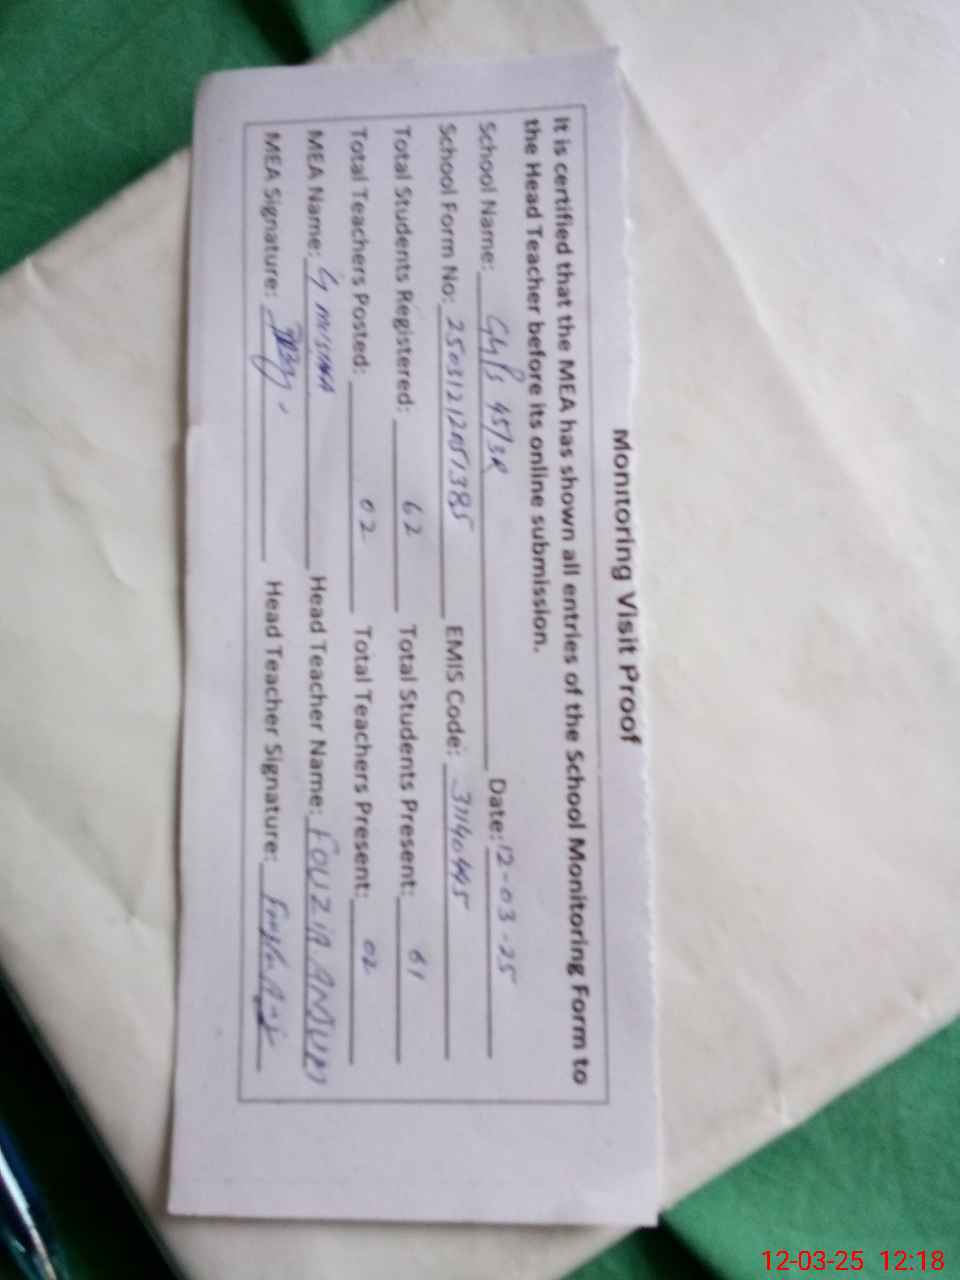 Monitoring Visit Proof
It is certified that the MEA has shown all entries of the School Monitoring Form to
the Head Teacher before its online submission.
School Name: 45/3R Date: 12-03-25
School Form No: EMIS Code: 31140445
Total Students Registered: 62 Total Students Present: 61
Total Teachers Posted: 02 Total Teachers Present: 02
MEA Name: Head Teacher Name: FOUZIA
MEA Signature: Head Teacher Signature:
12-03-25 12:18